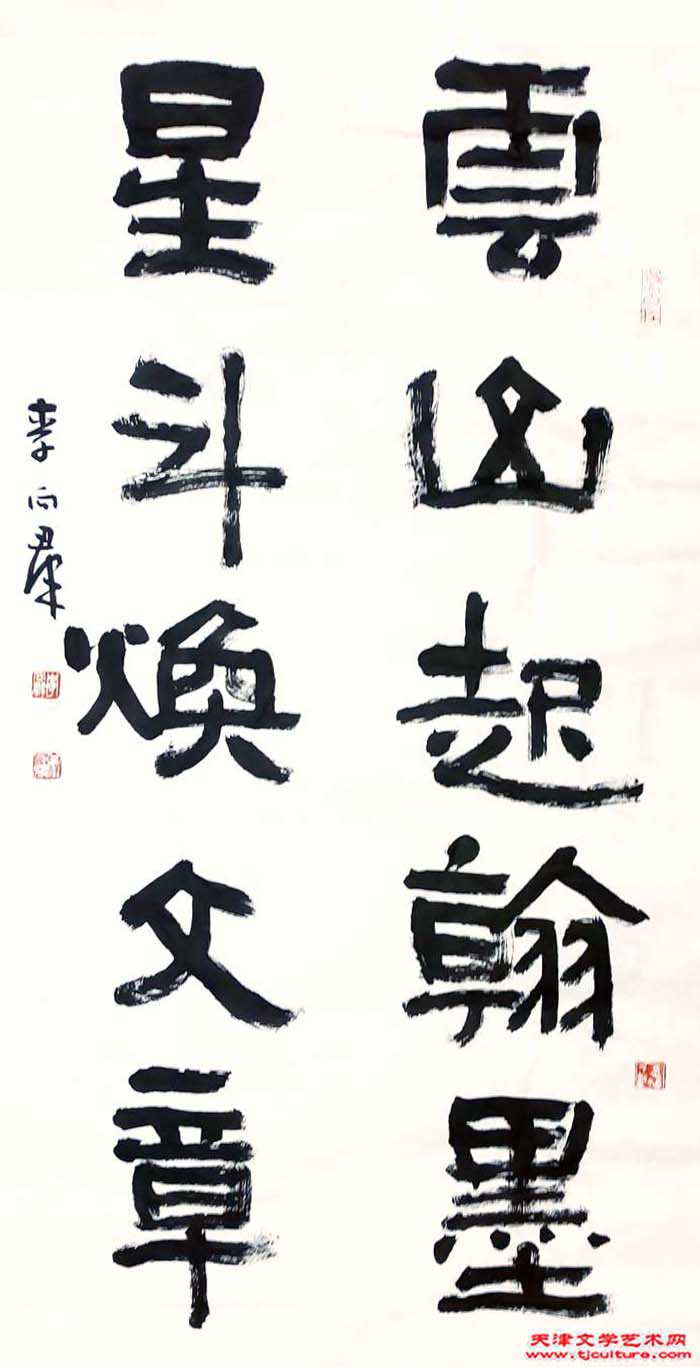 雲山起翰墨
星斗煥文章
李向群
天津文学艺术网
www.tjculture.com